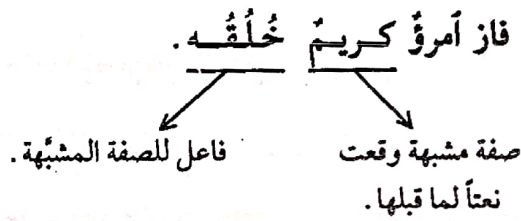 فاز ٱمرؤٌ كـريـمٌ خُلُقُـه.
صفة مشبهة وقعت
نعتاً لما قبلها.
فاعل للصفة المشبَّهة.